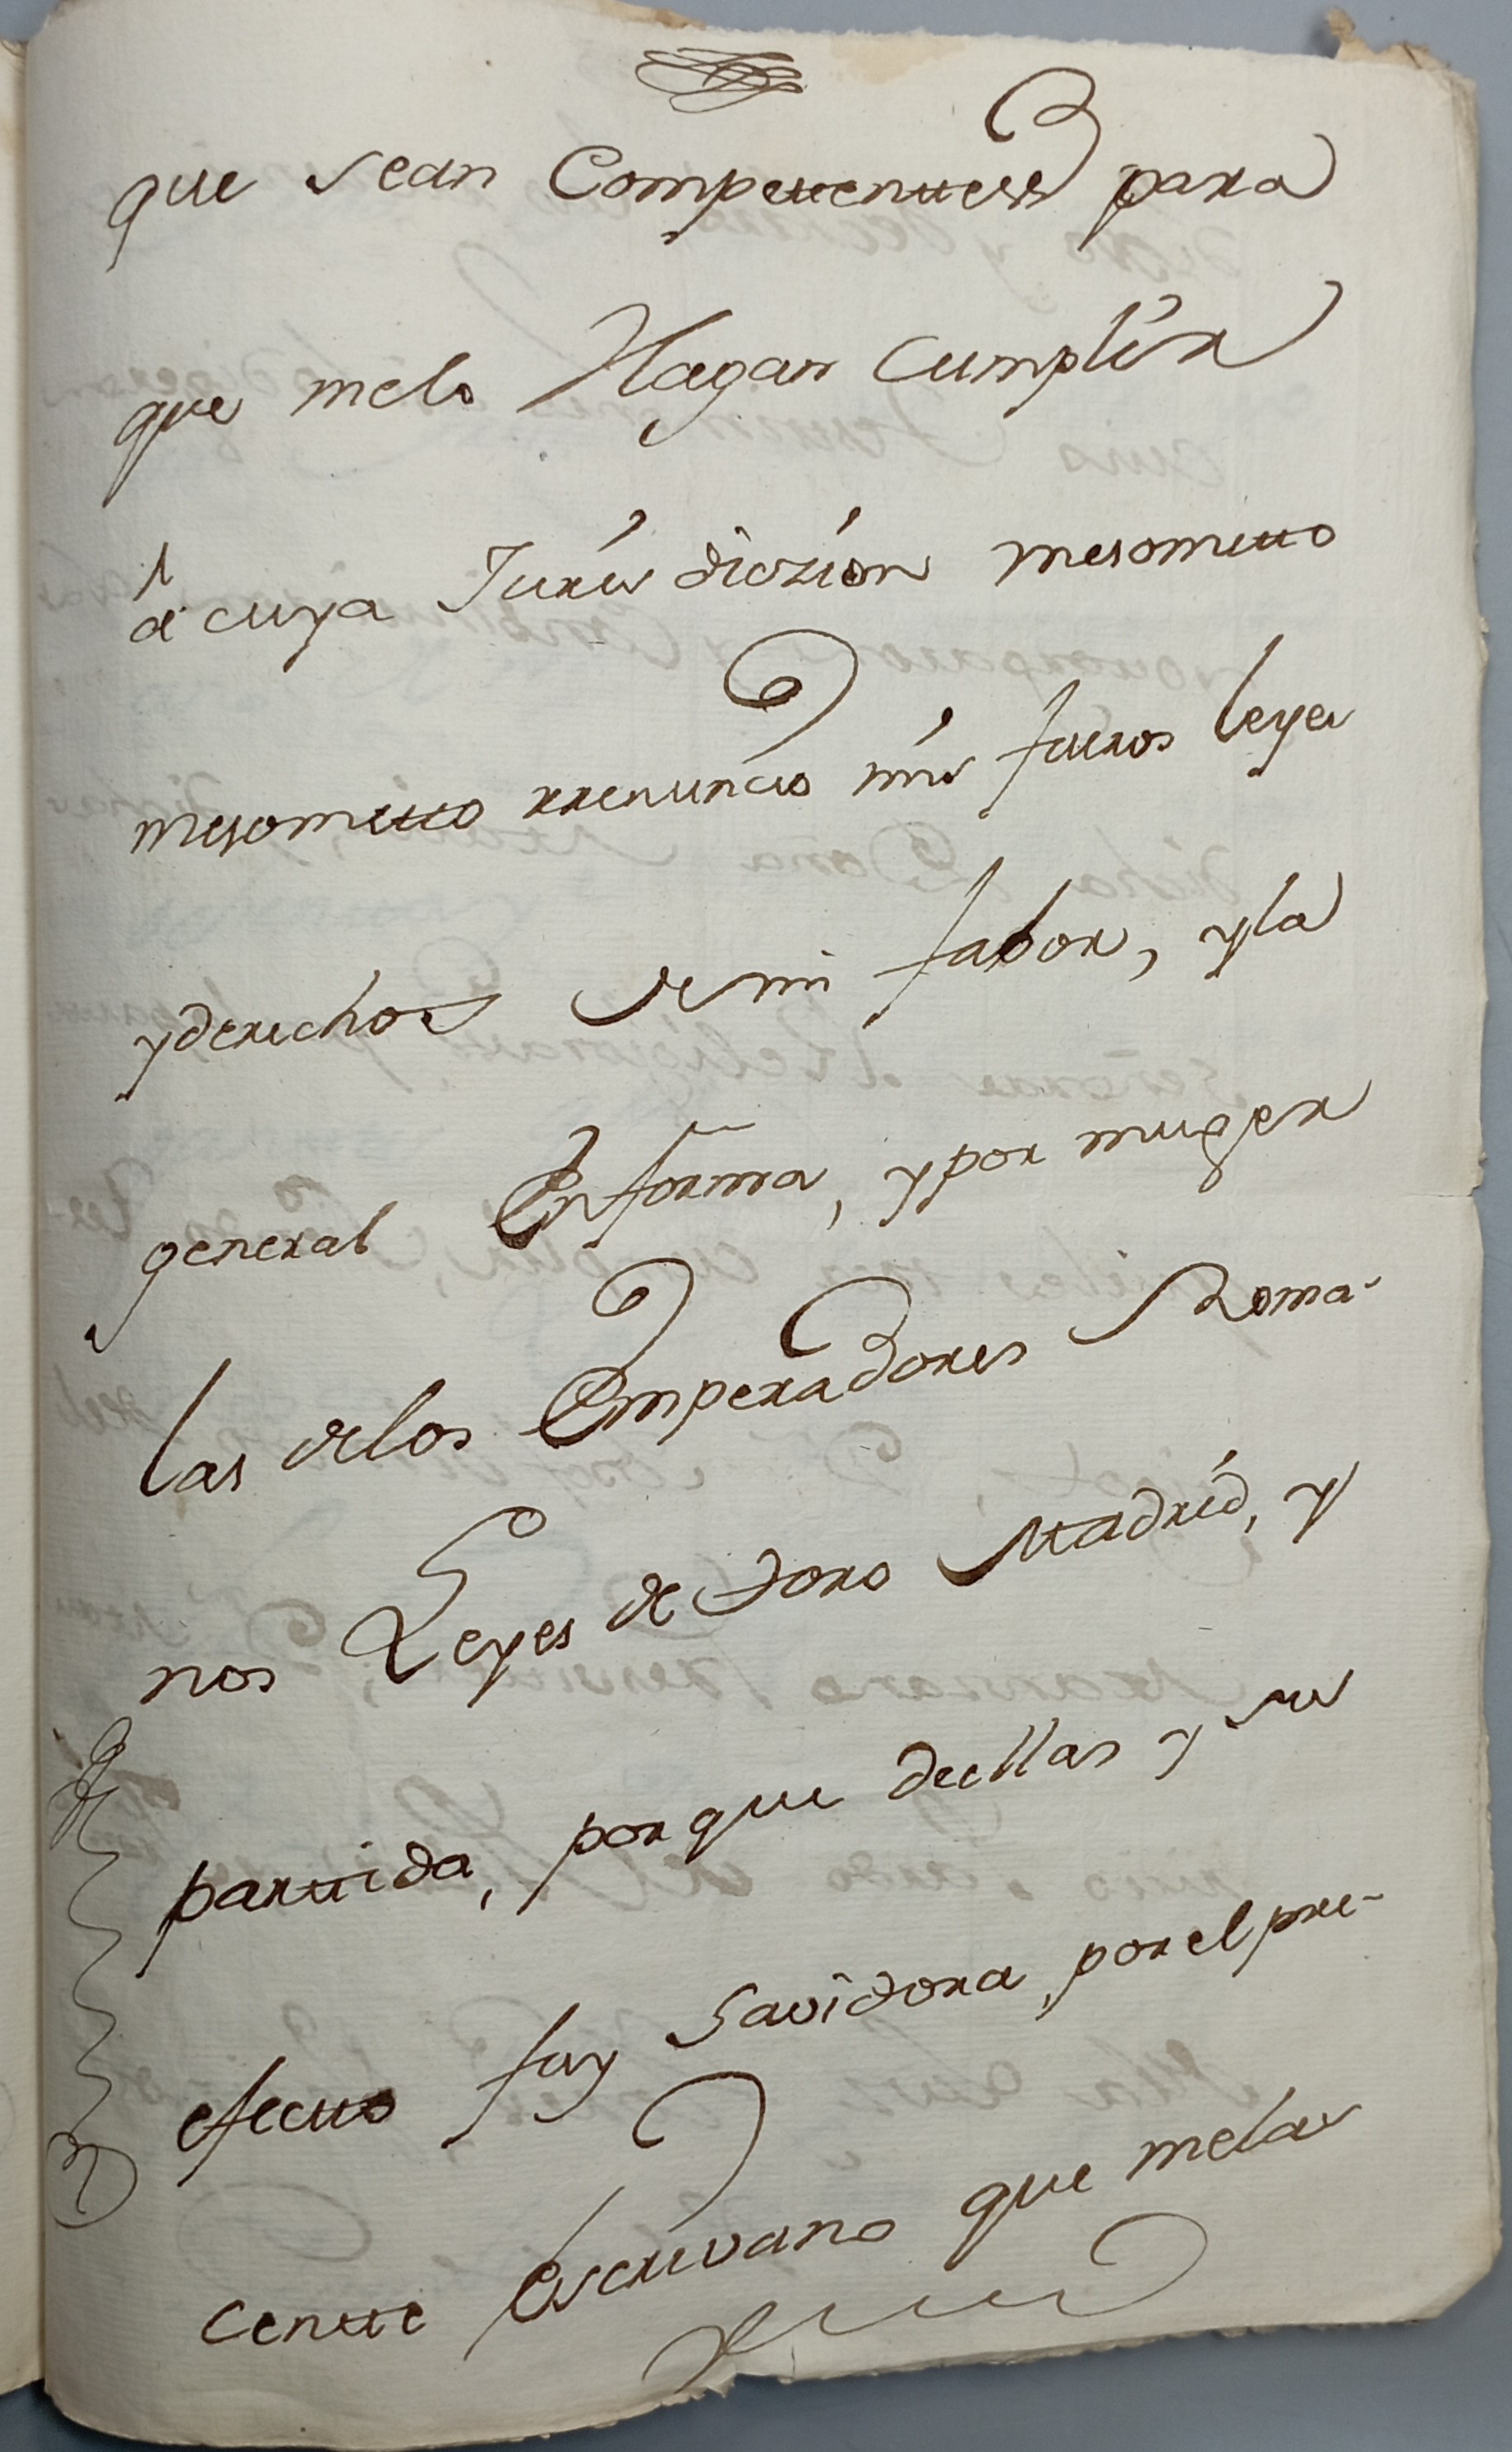 que sean Competentes para
que melo Hagan Cumplir
á cuya Jurisdiczion mesometto
mesometto rrenuncio mis fueros leyes
yderechos demi fabor, yla
general Enforma, ypor muger
las delos Emperadores Roma-
nos Leyes de Toro Madrid, y
partida, porque deellas y su
efecto fuy Savidora, porel pre-
cente Escrivano que melas